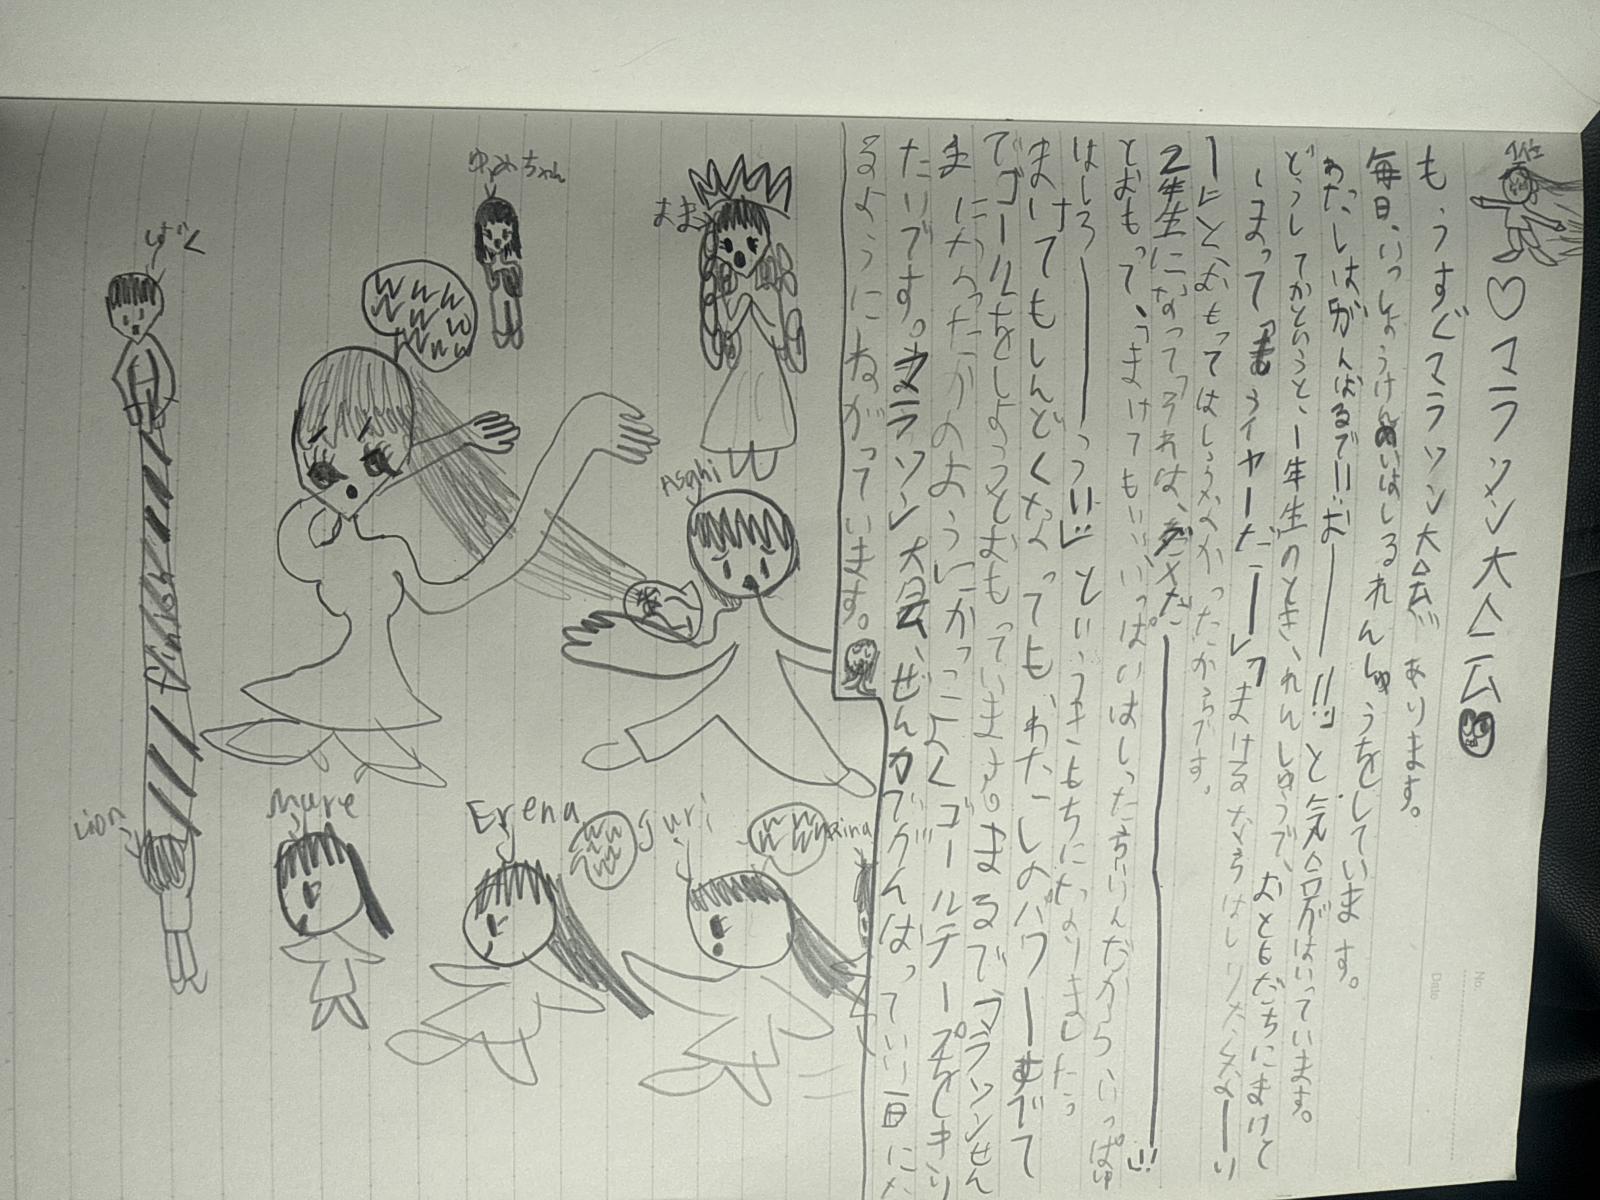 ♡マラソン大会
もうすぐマラソン大会があります。
毎日、いっしょうけんめいはしるれんしゅうをしています。
わたしは「がんばるで!!お――!!」と気合がはいっています。
どうしてかというと、一年生のとき、れんしゅうで、おともだちにまけて
しまって「もうイヤーだ――」「まけるならはしりたくな――い
」とおもってはしらなかったからです。
2年生になって「それは、だめだ――!!」
とおもって、「まけてもいい、いっぱいはしった方がいんだから いっぱい
はしろ――っう!!」というきもちになりました。
まけてもしんどくなっても、わたしのパワーすべて
でゴールをしようとおもっています。まるでマラソンせん
しゅになったかのようにかっこよくゴールテープをきり
たいです。マラソン大会、ぜんかがんばっていい日にな
るようにねがっています。
ゆみちゃん
まま
ぱく
Asghi
finish
Lion
Mure
Erena
Juri
Naina
No.
Date